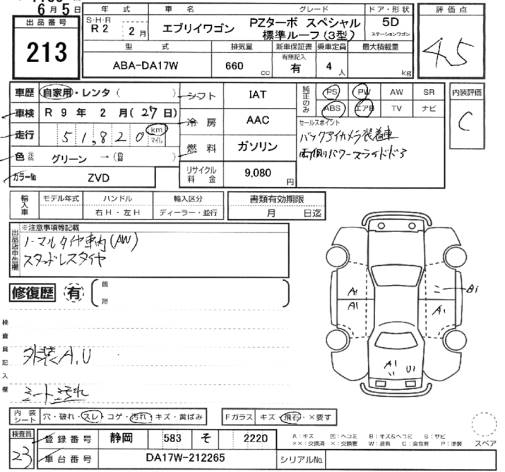 6月5日
出品番号
213
S・H・R
R2
年式
2月
車名
エブリイワゴン
グレード
PZターボ スペシャル
標準ルーフ(3型)
ドア・形状
5D
ステーションワゴン
型式
ABA-DA17W
排気量
660 cc
新車保証書
有無記入
有
乗車定員
4人
最大積載量
kg
評価点
4.5
車歴 自家用・レンタ( )
車検 R9年2月(27日)
走行 51,820 km マイル
色 グリーン → ( )
カラーNo ZVD
シフト IAT
冷房 AAC
燃料 ガソリン
リサイクル料金 9,080円
純正のみ
PS PW AW SR
ABS エアB TV ナビ
セールスポイント
バックアイカメラ装着車
両側パワースライドドア
内装評価
C
輸入車
モデル年式
ハンドル
右H・左H
輸入区分
ディーラー・並行
書類有効期限
月 日迄
出品店申告欄
※注意事項等記載
ノーマルタイヤ車内(AW)
スタッドレスタイヤ
修復歴 有
検査員記入欄
外装A,U
シートスレ
A1
A1
B1
A1
U1
内装シート 穴・破れ・スレ・コゲ・汚れ・キズ・黄ばみ
Fガラス キズ・飛石・×要す
スペア
検査員
23
登録番号 静岡 583 そ 2220
車台番号 DA17W-212265
シリアルNo.
A:キズ E:ヘコミ B:キズ&ヘコミ S:サビ